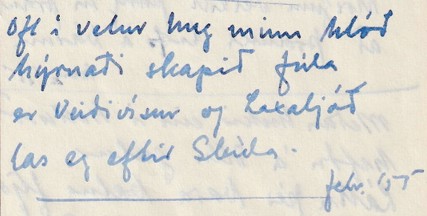 Oft í vetur hug minn hlóð
hýrnaði skapið fúla
er Veiðivísur og Laxaljóð
las eg eftir Skúla.
febr. '55